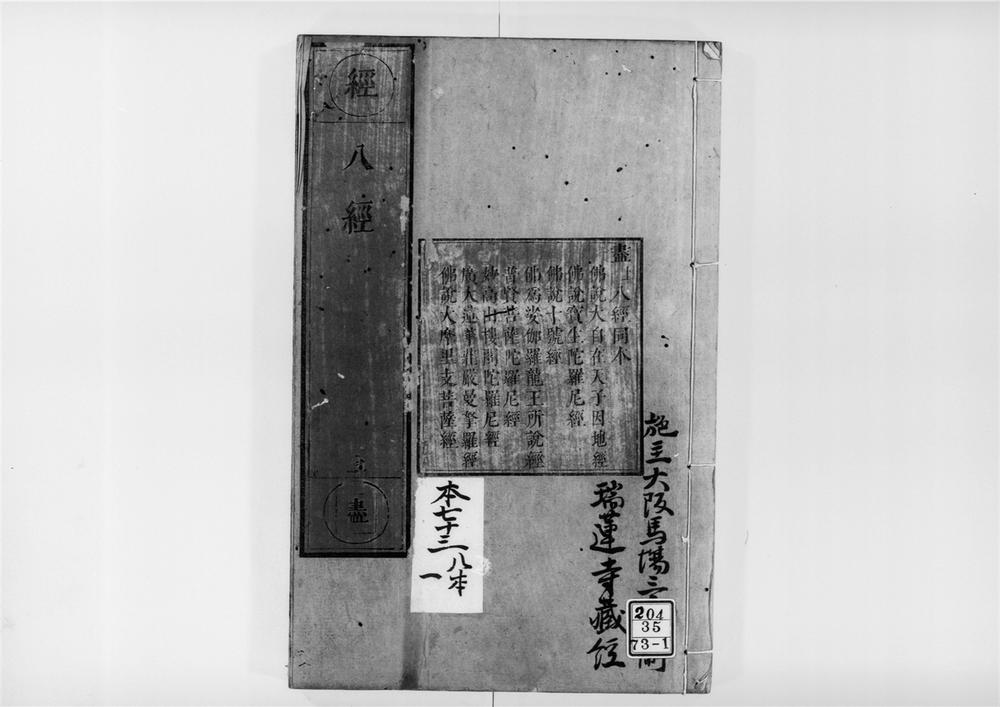 經
八經
盡
盡 八經同本
佛說大自在天子因地經
佛說寶生陀羅尼經
佛說十號經
佛爲娑伽羅龍王所說經
普賢菩薩陀羅尼經
妙高山樓閣陀羅尼經
廣大蓮華莊嚴曼拏羅經
佛說大摩里支菩薩經
施主大阪馬場三
瑞蓮寺藏經
本七十三八本
一
204
35
73-1